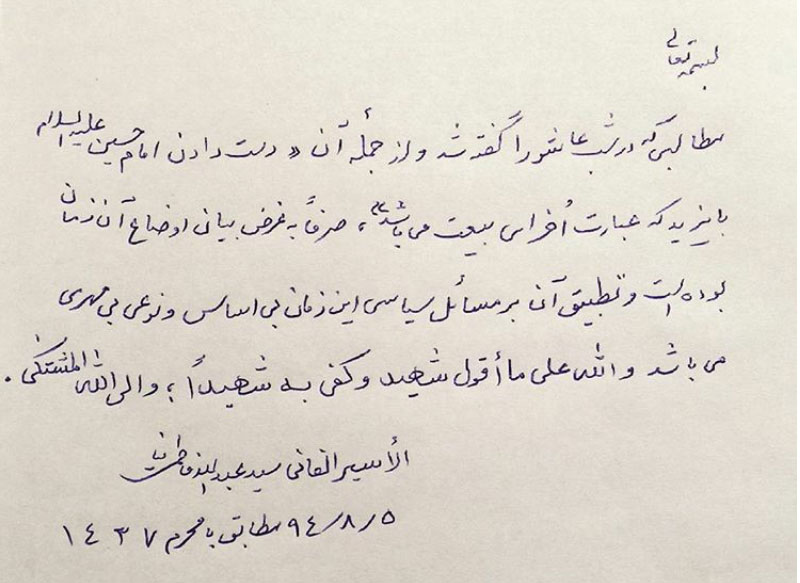 بسمه تعالی
مطالبی که در شب عاشورا گفته شد و از جمله آن «دست دادن امام حسین علیه السلام
با یزید که عبارت اُخرای بیعت می باشد»، صرفاً به غرض بیان اوضاع آن زمان
بوده است و تطبیق آن بر مسائل سیاسی این زمان بی اساس و نوعی بی مهری
می باشد والله علی ما أقول شهید و کفی به شهیداً، و الی الله المشتکی.
الأسیر الفانی سید عبدالله فاطمی نیا
۹٤/۸/۵ مطابق با محرم ۱٤۳۷